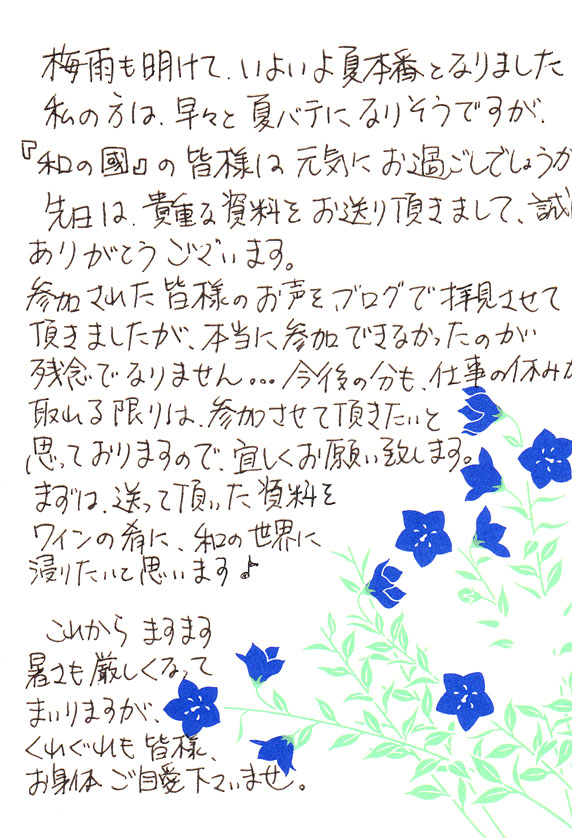 梅雨も明けて、いよいよ夏本番となりました
私の方は、早々と夏バテになりそうですが、
『和の國』の皆様は元気にお過ごしでしょうか
先日は、貴重な資料をお送り頂きまして、誠に
ありがとうございます。
参加された皆様のお声をブログで拝見させて
頂きましたが、本当に参加できなかったのが
残念でなりません...今後の分も、仕事の休みが
取れる限りは、参加させて頂きたいと
思っておりますので、宜しくお願い致します。
まずは、送って頂いた資料を
ワインの肴に、和の世界に
浸りたいと思います♪
これから ますます
暑さも厳しくなって
まいりますが、
くれぐれも皆様、
お身体ご自愛下さいませ。